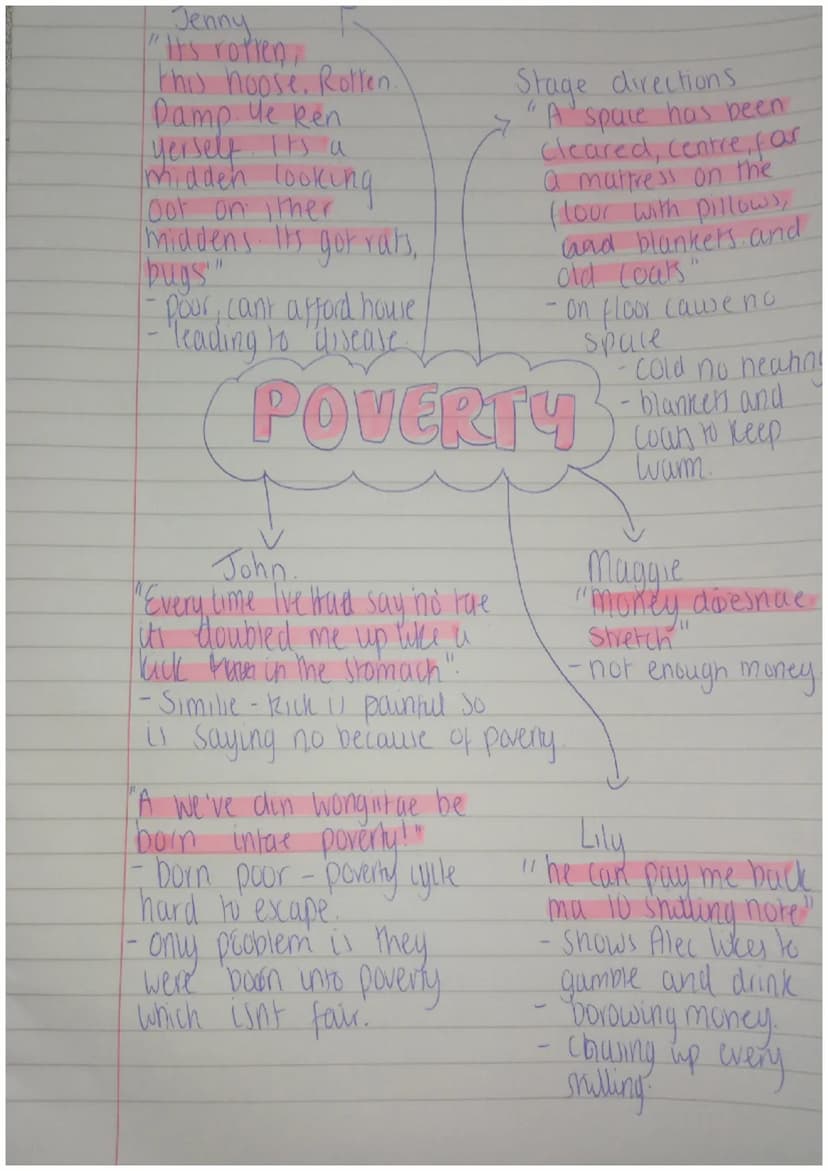 Jenny
"Its rotten,
this hoose. Rotten.
Damp. Ye ken
yerself. Its a
midden looking
oot on ither
middens. Its got rats,
bugs"
- poor, cant afford house
- leading to disease.
Stage directions
"A space has been
cleared, centre, for
a mattress on the
floor with pillows,
and blankets. and
old coats"
- on floor cause no
space
- cold no heating
- blankets and
coats to keep
warm.
POVERTY
John.
"Every time I've had say no tae
it's doubled me up like a
kick in the stomach".
- Similie - kick is painful so
is saying no because of poverty.
"A we've din wong is tae be
born intae poverty!"
- born poor - poverty cycle
hard to escape.
- only problem is they
were born into poverty
which isnt fair.
Maggie
"Money doesnae
stretch"
- not enough money
Lily
"he can pay me back
ma 10 shilling note"
- shows Alec likes to
gamble and drink
- borowing money.
- chasing up every
shilling.